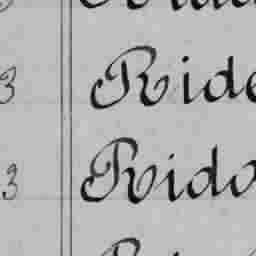 3 Ride
3 Rido